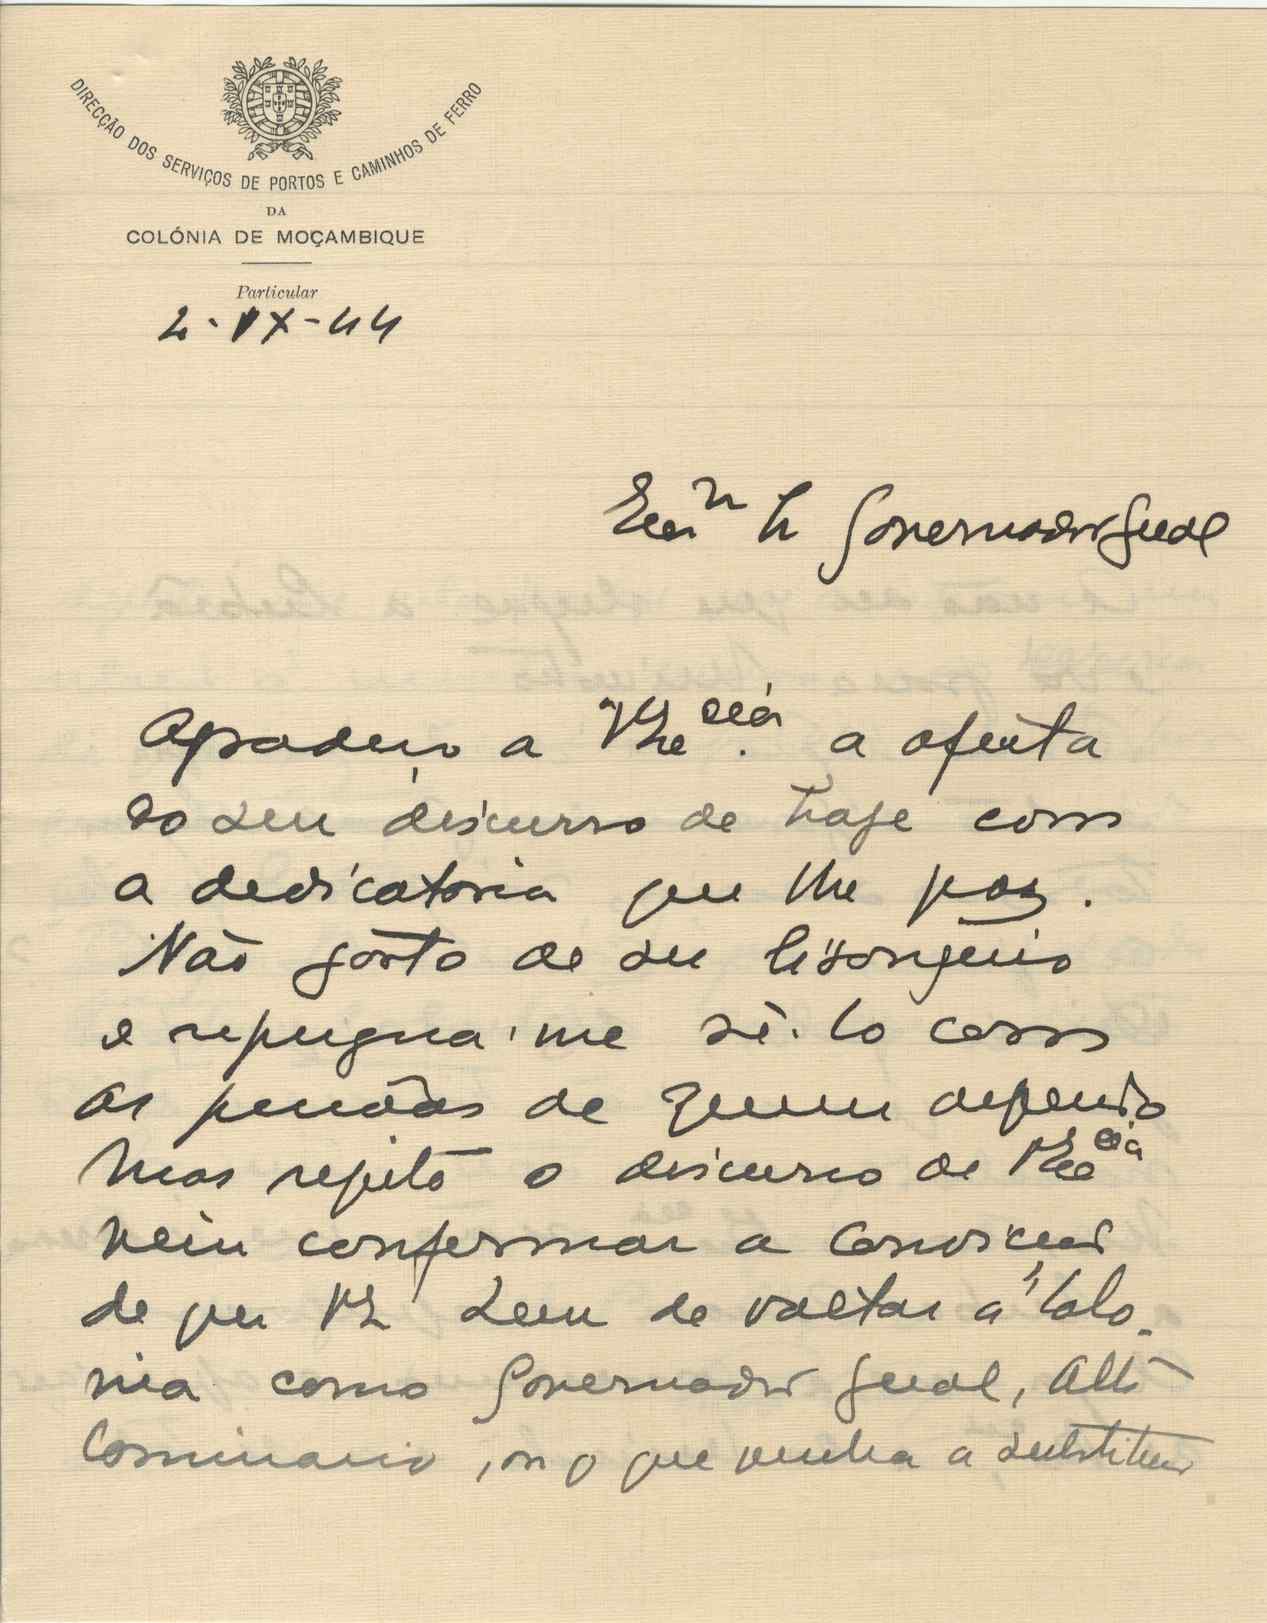 DIRECÇÃO DOS SERVIÇOS DE PORTOS E CAMINHOS DE FERRO
DA
COLÓNIA DE MOÇAMBIQUE
Particular
2-IX-44
Exmº Sr Governador Geral
Agradeço a V Exª a oferta
do seu discurso de hoje com
a dedicatoria que lhe poz.
Não gosto de ser lisongeiro
e repugna-me sê-lo com
as pessoas de quem dependo
Mas repito o discurso de V Exª
veiu confirmar a convicção
de que V E tem de voltar á Colo-
nia como Governador Geral, Alto
Comissario, ou o que venha a substituir